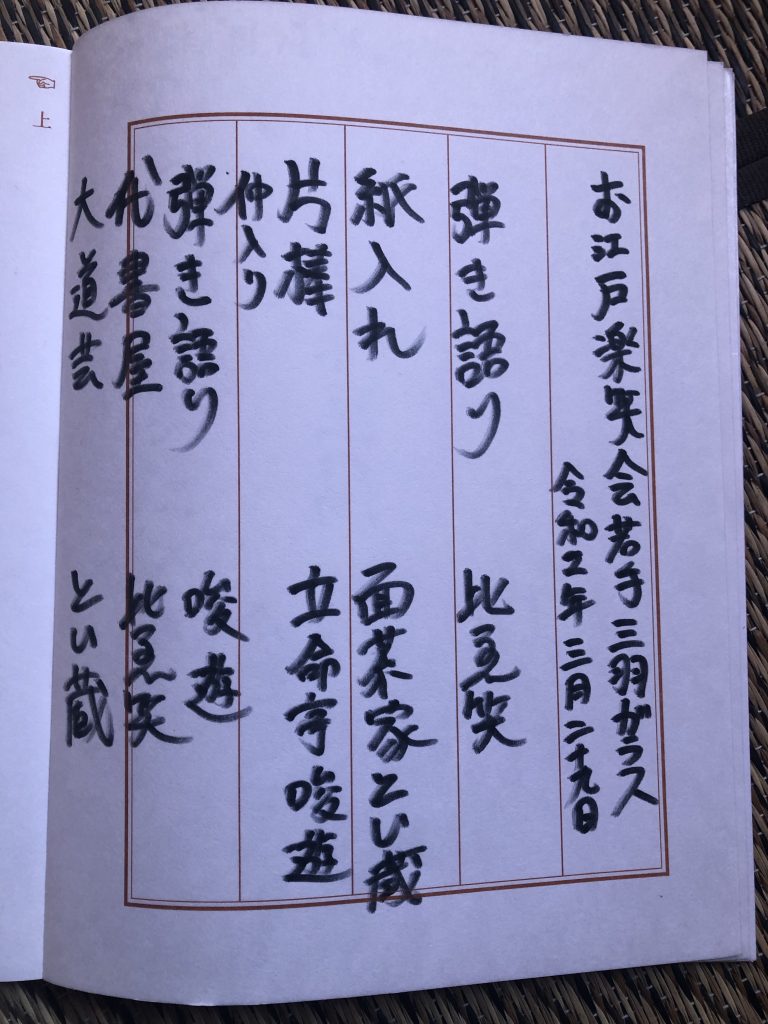 お江戸楽笑会若手三羽ガラス
令和二年 三月二十九日
弾き語り
紙入れ 面菜家とい蔵
片棒 立命亭唆遊
仲入り
弾き語り 唆遊
代書屋
大道芸 とい蔵
☜上